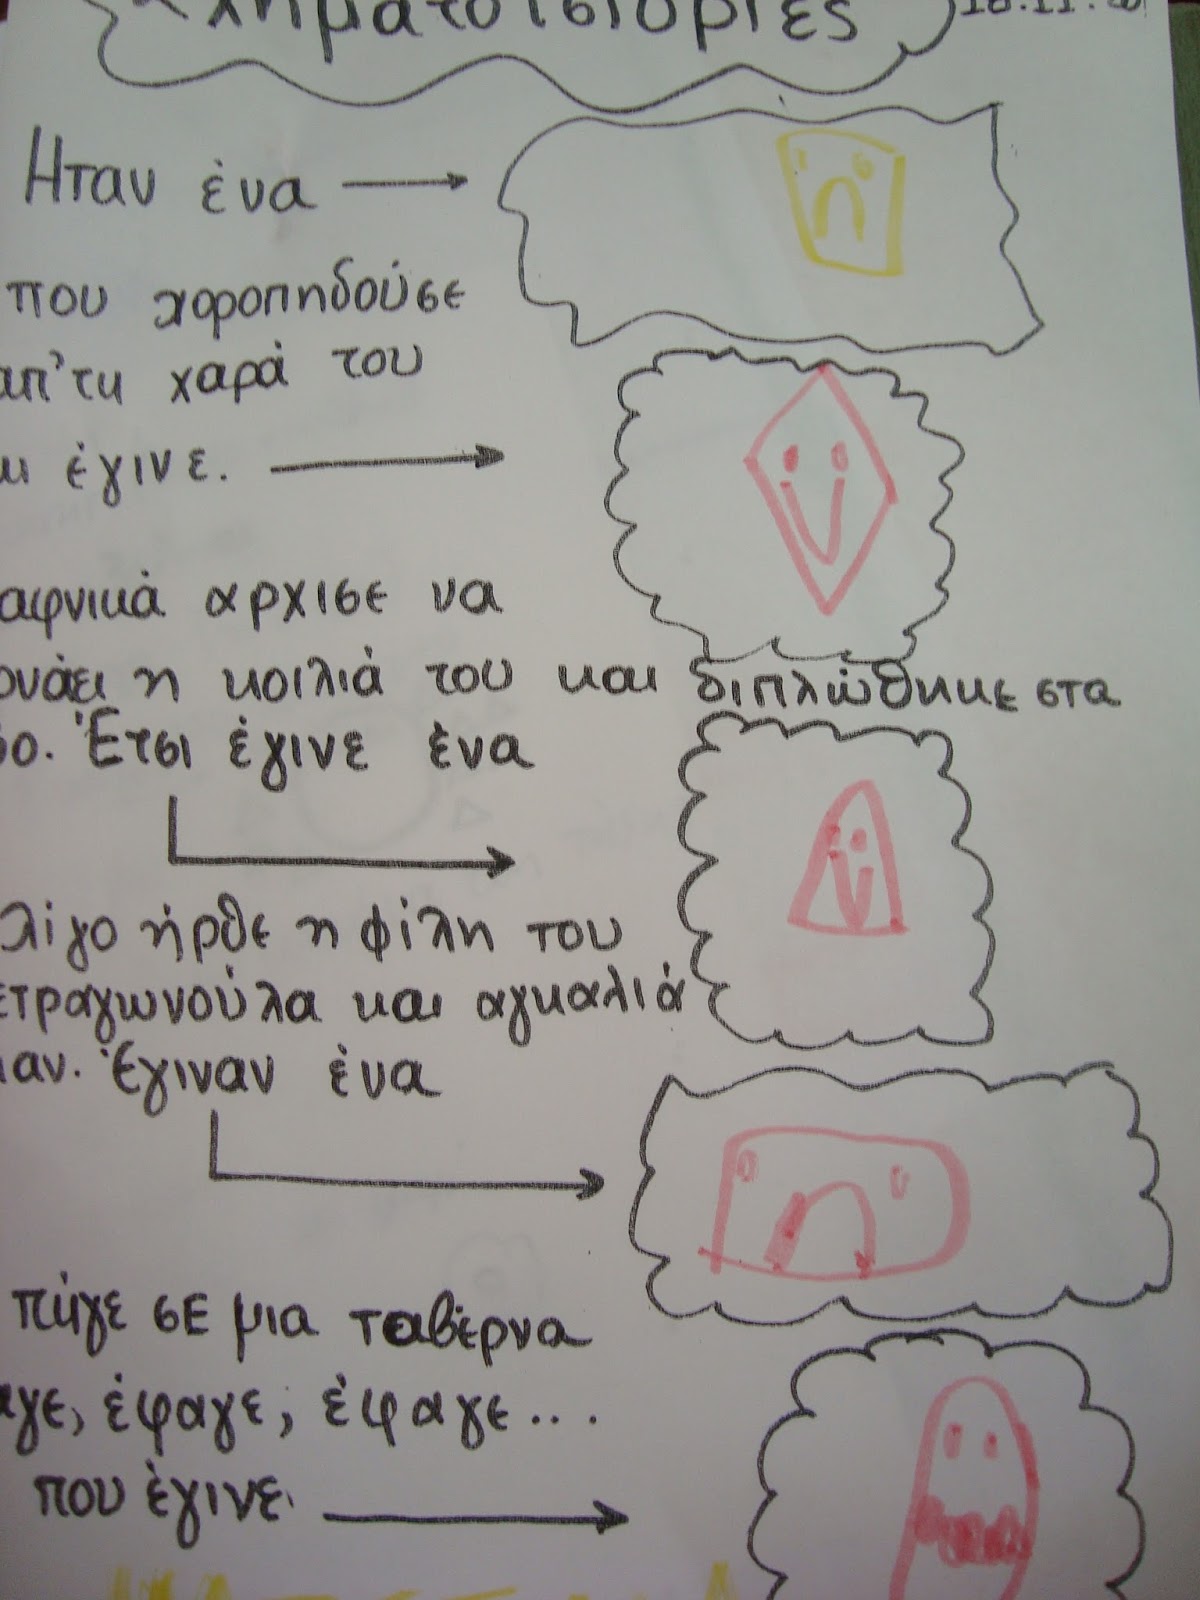 χηματοϊστορίες 18.11.
Ηταν ένα
που χοροπηδούσε
απ'τη χαρά του
κι έγινε.
αφνικά αρχισε να
ονάει η κοιλιά του και διπλώθηκκε στα
ύο. Έτσι έγινε ένα
λίγο ήρθε η φίλη του
ετραγωνούλα και αγκαλιά
ιαν. Έγιναν ένα
πήγε σε μια ταβέρνα
αγε, έφαγε, έφαγε...
που έγινε.